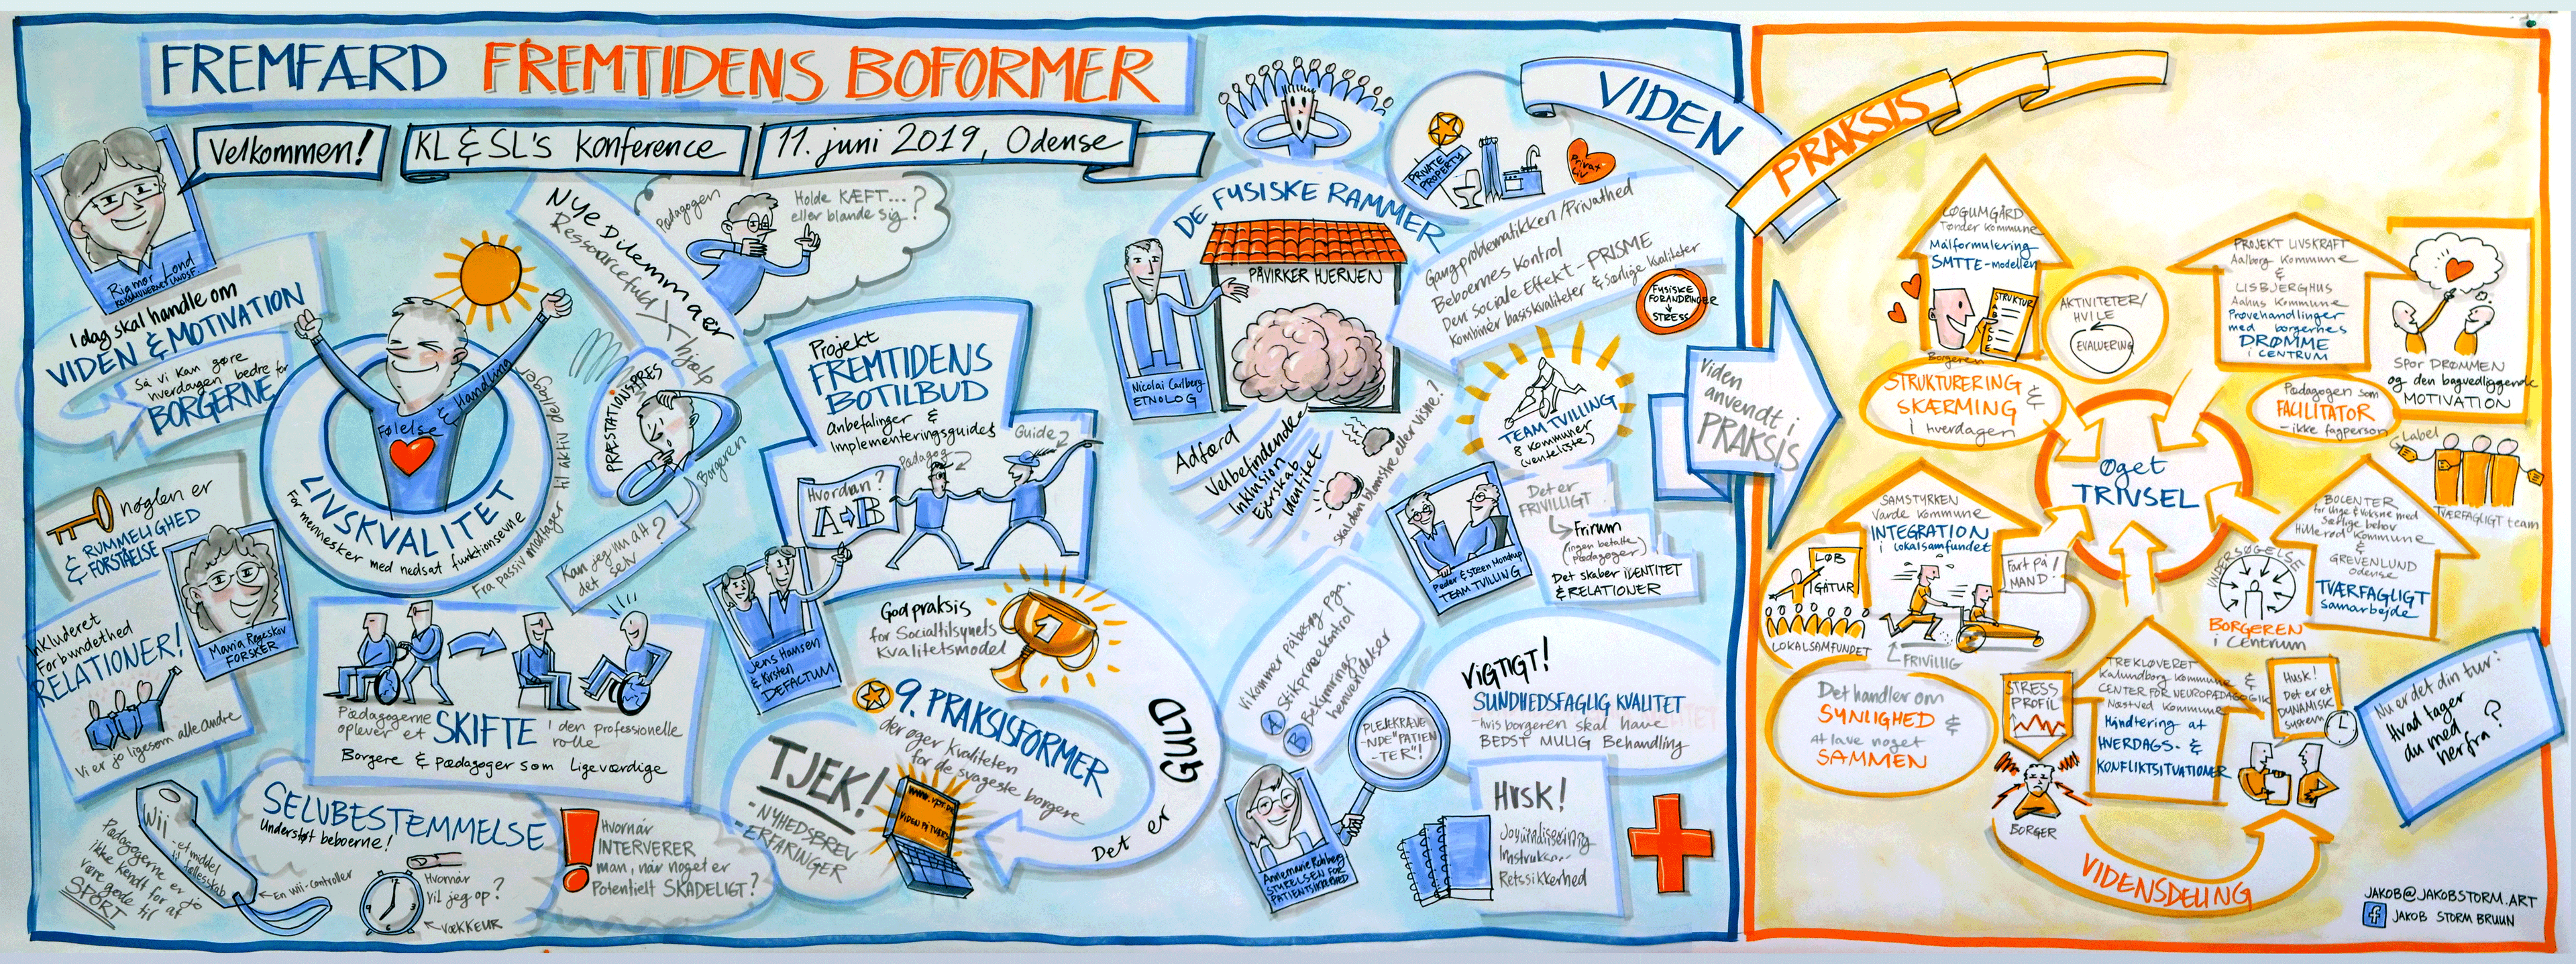 FREMFÆRD FREMTIDENS BOFORMER
Velkommen!
KL & SL's Konference
11. juni 2019, Odense
Rigmor Lond
KOMMUNERNES LANDSF.
I dag skal handle om
VIDEN & MOTIVATION
Så vi kan gøre
hverdagen bedre for
BORGERNE
Følelse & Handling
LIVSKVALITET
For mennesker med nedsat funktionsevne
Fra passiv modtager til aktiv deltager
nøglen er
RUMMELIGHED
& FORSTÅELSE
Maria Røgeskov
FORSKER
Inkluderet
Forbundethed
RELATIONER!
Vi er jo ligesom alle andre
Nye Dilemmaer
Ressourcefuld
hjælp
Pædagogen
Holde KÆFT...?
eller blande sig?
PRÆSTATIONSPRES
Borgeren
Kan jeg nu alt
det selv?
Pædagogerne
oplever et
SKIFTE
i den professionelle
rolle
Borgere & pædagoger som ligeværdige
Wii
-et middel
til fællesskab
En wii-controller
Pædagogerne er jo
ikke kendt for at
være gode til
SPORT
SELVBESTEMMELSE
Understøt beboerne!
Hvornår
vil jeg op?
VÆKKEUR
Hvornår
INTERVERER
man, når noget er
Potentielt SKADELIGT?
Projekt
FREMTIDENS
BOTILBUD
Anbefalinger &
Implementeringsguides
Guide
Pædagog
Hvordan?
A B
Jens Hansen
& Kirsten
DEFACTUM
God praksis
for Socialtilsynets
Kvalitetsmodel
1
9. PRAKSISFORMER
der øger kvaliteten
for de svageste borgere
Det er GULD
TJEK!
- NYHEDSBREV
- ERFARINGER
www.vpt.dk
VIDEN PÅ TVÆRS
DE FYSISKE RAMMER
PÅVIRKER HJERNEN
Nicolai Carlberg
ETNOLOG
Adfærd
Velbefindende
Inklusion
Ejerskab
Identitet
Skal den blomstre eller visne?
PRIVATE
PROPERTY
Privatliv
Gangproblematikken/Privathed
Beboernes kontrol
Den Sociale Effekt - PRISME
Kombinér basiskvaliteter & Særlige kvaliteter
FYSISKE
FORANDRINGER
STRESS
TEAM TVILLING
8 kommuner
(venteliste)
Peder & Steen Mondrup
TEAM TVILLING
Det er
FRIVILLIGT
Frirum
(ingen betalte
pædagoger)
Det skaber IDENTITET
& RELATIONER
Vi kommer på besøg pga.
A Stikprøvekontrol
B Bekymrings
henvendelser
PLEJEKRÆVE
-NDE "PATIEN
-TER"!
Annemarie Rohberg
STYRELSEN FOR
PATIENTSIKKERHED
VIGTIGT!
SUNDHEDSFAGLIG KVALITET
- hvis borgeren skal have
BEDST MULIG Behandling
Husk!
Journalisering
Instrukser
Retssikkerhed
VIDEN
PRAKSIS
Viden
anvendt i
PRAKSIS
LØGUMGÅRD
Tønder kommune
Målformulering
SMTTE-modellen
STRUKTUR
Borgeren
STRUKTURERING
& SKÆRMING
i hverdagen
AKTIVITETER/
HVILE
EVALUERING
PROJEKT LIVSKRAFT
Aalborg Kommune
&
LISBJERGHUS
Aahus Kommune
Prøvehandlinger
med borgernes
DRØMME
i CENTRUM
SPOR DRØMMEN
og den bagvedliggende
MOTIVATION
Pædagogen som
FACILITATOR
- ikke fagperson
Label
TVÆRFAGLIGT team
Øget
TRIVSEL
SAMSTYRKEN
Varde Kommune
INTEGRATION
i Lokalsamfundet
LØB
IGATUR
LOKALSAMFUNDET
FRIVILLIG
Fart på
MAND!
Det handler om
SYNLIGHED &
At lave noget
SAMMEN
BOCENTER
for Unge & Voksne med
Særlige behov
Hillerød Kommune
&
GREVENLUND
Odense
TVÆRFAGLIGT
samarbejde
UNDERSØGELSE
BORGEREN
i centrum
TREKLØVERET
Kalundborg Kommune &
CENTER FOR NEUROPÆDAGOGIK
Næstved Kommune
Håndtering af
HVERDAGS- &
KONFLIKTSITUATIONER
STRESS
PROFIL
BORGER
Husk!
Det er et
DYNAMISK
system
VIDENSDELING
Nu er det din tur:
Hvad tager
du med
herfra?
JAKOB@JAKOBSTORM.ART
JAKOB STORM BRUUN